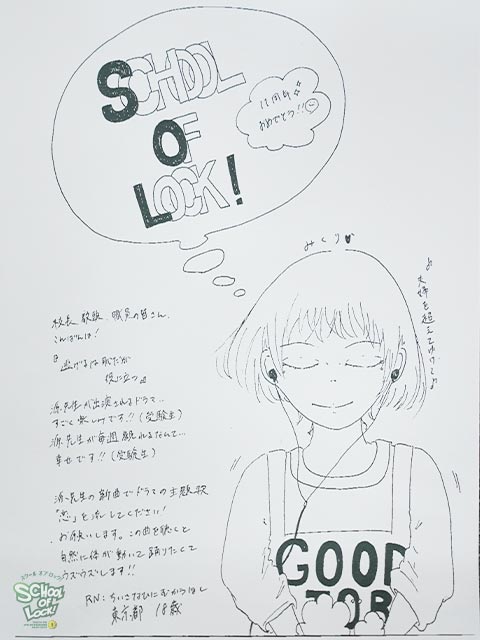 SCHOOL
OF
LOCK!
11周年
おめでとう!!
みくり♥
♪夫婦を超えてゆけ♪
校長、教頭、職員の皆さん、
こんばんは!
『逃げるは恥だが
役に立つ』
源先生が出演されるドラマ…
すごく楽しみです!!(受験生)
源先生が毎週観れるなんて…
幸せです!!(受験生)
源先生の新曲でドラマの主題歌
「恋」を流してください!
お願いします。この曲を聴くと
自然に体が動いて踊りたくて
ウズウズします!!
RN:ちいさなひにむかうほし
東京都 18歳
GOOD
JOB
スクール オブ ロック!
SCHOOL
OF
LOCK!